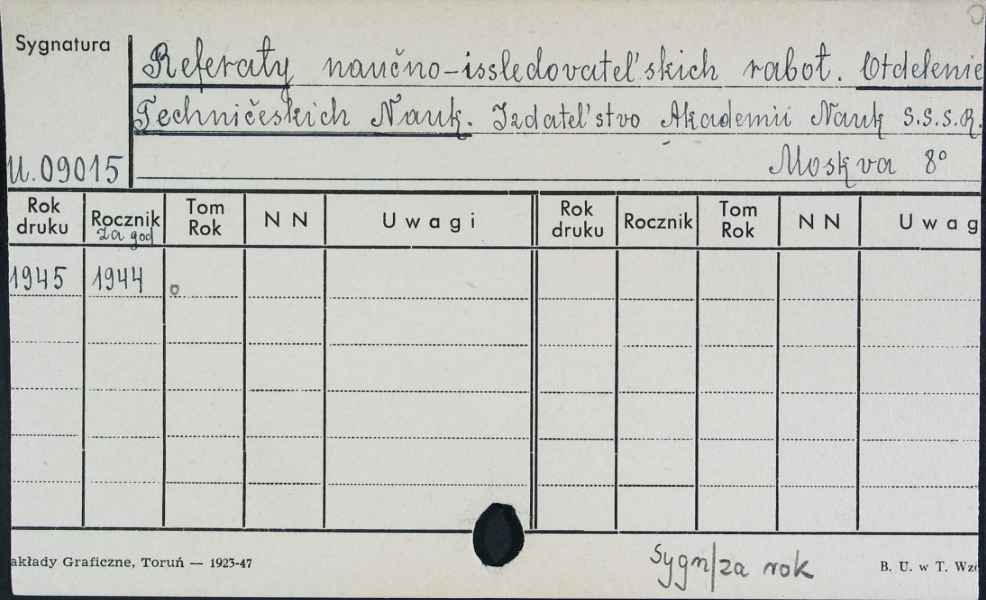 Sygnatura
Referaty naučno-issledovatel'skich rabot. Otdelenie
Techničeskich Nauk. Izdatel'stvo Akademii Nauk S.S.S.R.
U.09015
Moskva 8°
Rok druku Rocznik za god Tom Rok N N Uwagi Rok druku Rocznik Tom Rok N N Uwag
1945 1944
akłady Graficzne, Toruń — 1923-47
Sygn/za rok
B. U. w T. Wzó